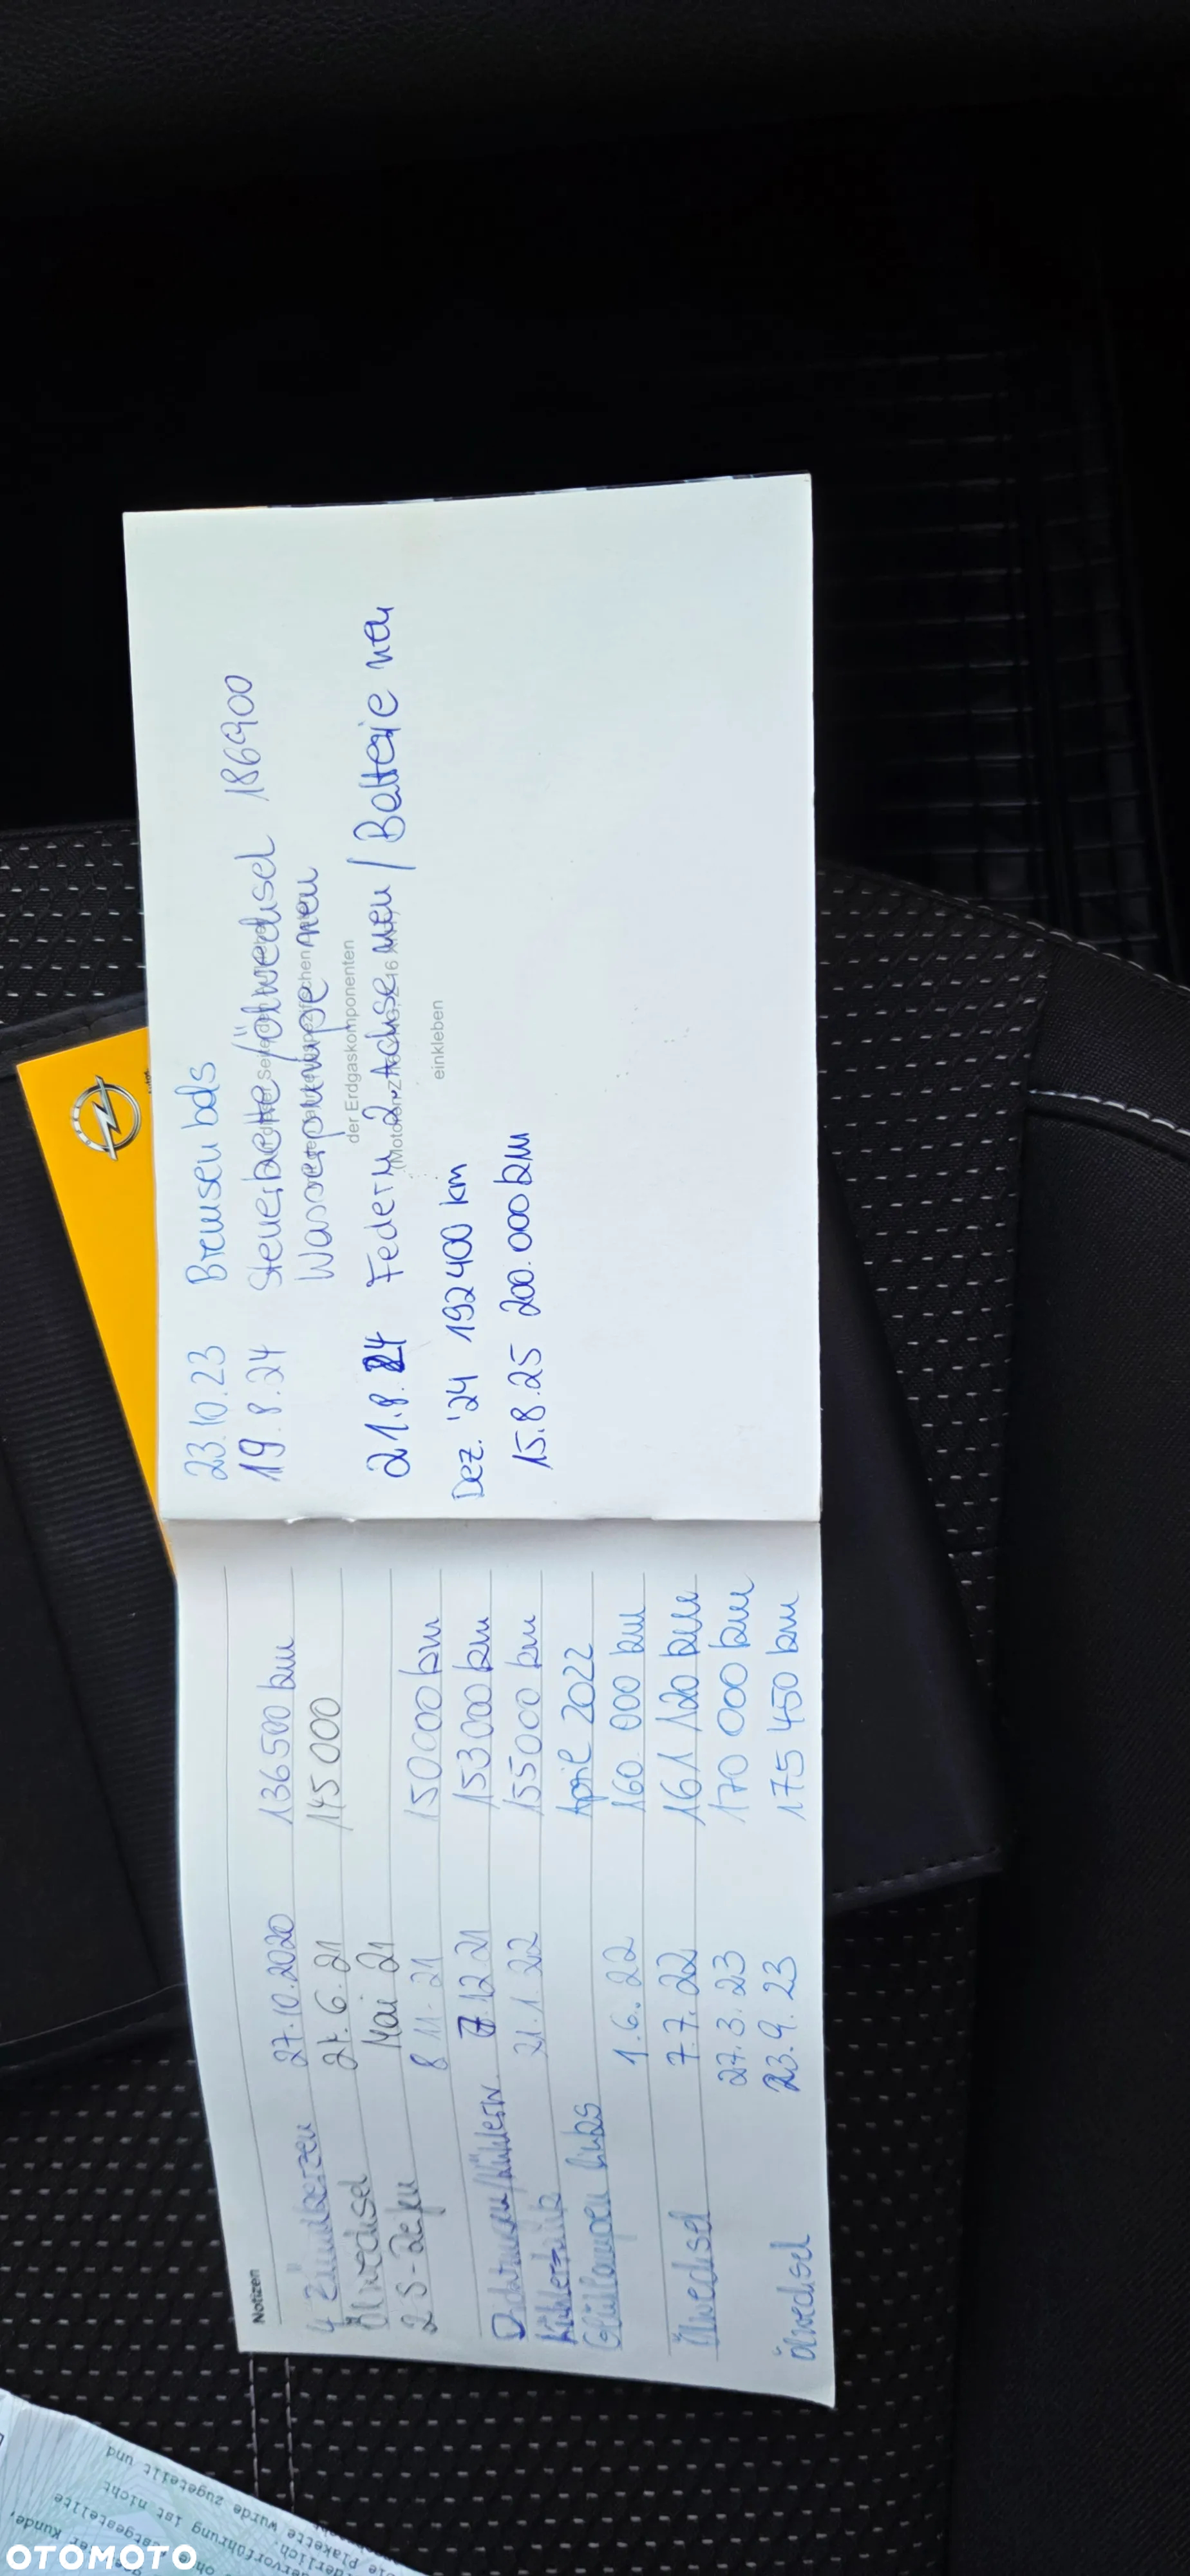 Notizen
4 Zündkerzen 27.10.2020 136500 km
Ölwechsel 21.6.21 145000
2 S- Mai 21
8 11-21 150000 km
Dichtungen/Kühlerw. 7.12.21 153000 km
21.1.22 155000 km
Glühlampen links April 2022
1.6.22 160.000 km
Ölwechsel 7.7.22 161 120 km
27.3.23 170 000 km
Ölwechsel 23.9.23 175 450 km
23.10.23 Bremsen
19.8.24 Steuerkette/Ölwechsel 186900
Wasserpumpe neu
der Erdgaskomponenten
21.8.24 Federn 2. Achse neu / Batterie neu
einkleben
Dez. '24 192400 km
15.8.25 200.000 km
wurde zugeteilt und
ist nicht
OTOMOTO